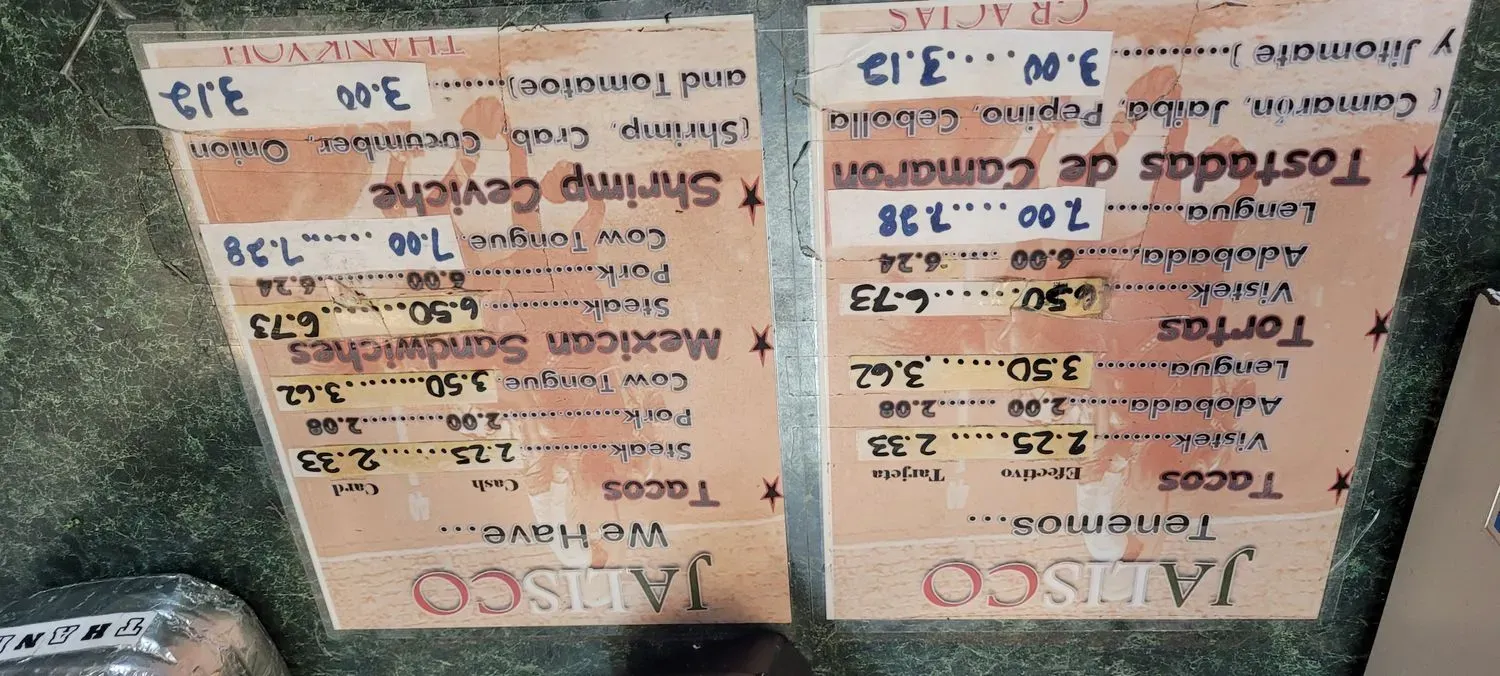 JALISCO
Tenemos...
Tacos Efectivo Tarjeta
Vistek........2.25.... 2.33
Adobada.......2.00 ......2.08
Lengua........3.50......3.62
Tortas
Vistek........6.50.......6.73
Adobada.......6.00 ......6.24
Lengua........7.00....7.28
Tostadas de Camaron
( Camarón, Jaiba, Pepino, Cebolla
y Jitomate ).........3.00....3.12
GRACIAS
JALISCO
We Have...
Tacos Cash Card
Steak..........2.25......2.33
Pork...........2.00.......2.08
Cow Tongue.3.50.......3.62
Mexican Sandwiches
Steak..........6.50......6.73
Pork...........6.00.......6.24
Cow Tongue.7.00 ......7.28
Shrimp Ceviche
(Shrimp, Crab, Cucumber, Onion
and Tomatoe)......3.00 3.12
THANK YOU
THAN